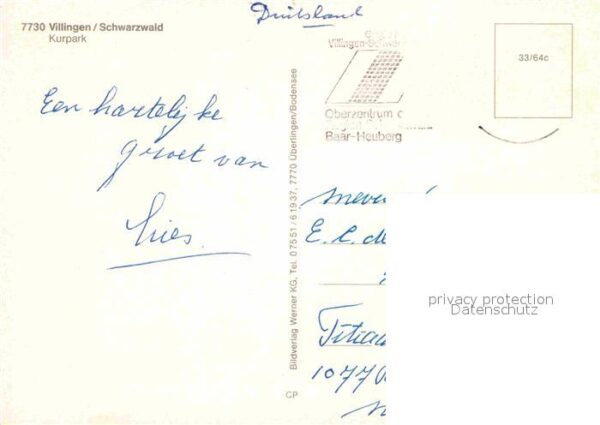 7730 Villingen / Schwarzwald
Kurpark
Duitsland
Villingen-Schwe
33/64c
Oberzentrum
Baar-Heuberg
Een hartelijke
groet van
Bildverlag Werner KG, Tel. 07551/61937, 7770 Überlingen/Bodensee
CP
E. C. de
1077
privacy protection
Datenschutz